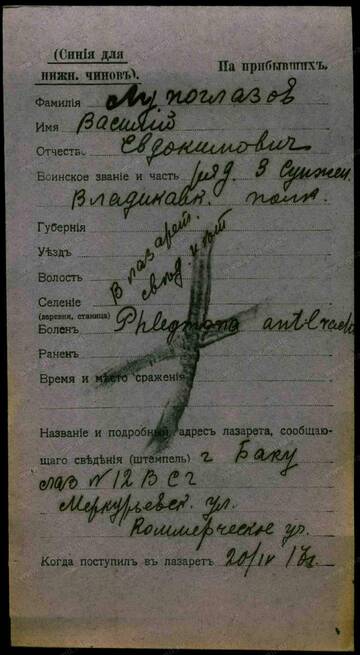 (Синія для
нижн. чиновъ).
На прибывшихъ.
Фамилія Лупоглазов
Имя Василій
Отчеств. Евдокимович
Воинское званіе и часть ряд. 3 Сунжен.
Владикавк. полк.
Губернія
Уѣздъ
Волость
Селеніе
(деревня, станица)
В лазарет.
свѣд. нѣт
Боленъ Phlegmona
Раненъ
Время и мѣсто сраженія
Названіе и подробный адресъ лазарета, сообщаю-
щаго свѣдѣнія (штемпель) г Баку
лаз N 12 В С г
Меркурьевск. ул.
Коммерческое
Когда поступил въ лазаретъ 20/IV